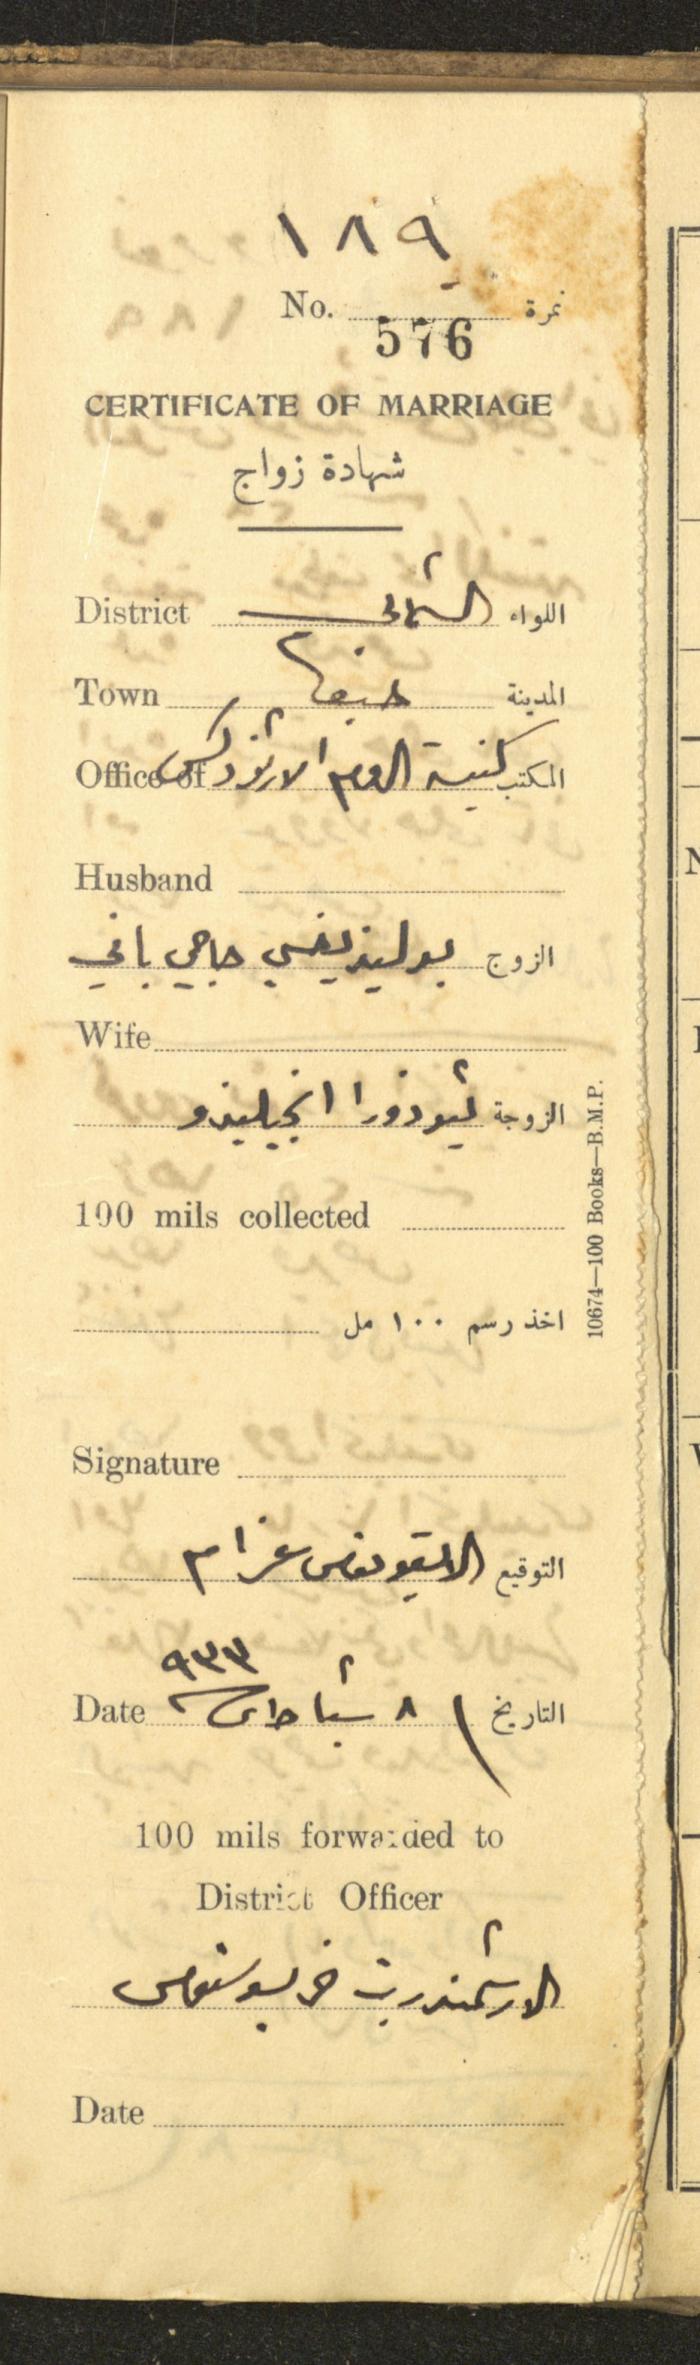 ١٨٩
No. نمرة
576
CERTIFICATE OF MARRIAGE
شهادة زواج
District الشمالي اللواء
Town حيفا المدينة
Office of كنيسة الروم الارثوذكس المكتب
Husband
الزوج بوليذيفسي حاجي ياني
Wife
الزوجة ثيوذورا انجيليذو
100 mils collected
اخذ رسم ١٠٠ مل
10674—100 Books—B.M.P.
Signature
التوقيع عزام
Date ٨ شباط ٩٣٣ التاريخ
100 mils forwarded to
District Officer
الارشمندريت
Date